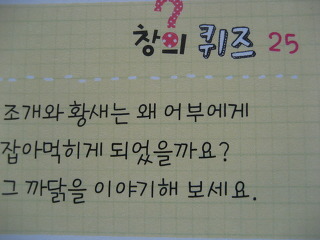 ?
창의 퀴즈 25
조개와 황새는 왜 어부에게
잡아먹히게 되었을까요?
그 까닭을 이야기해 보세요.